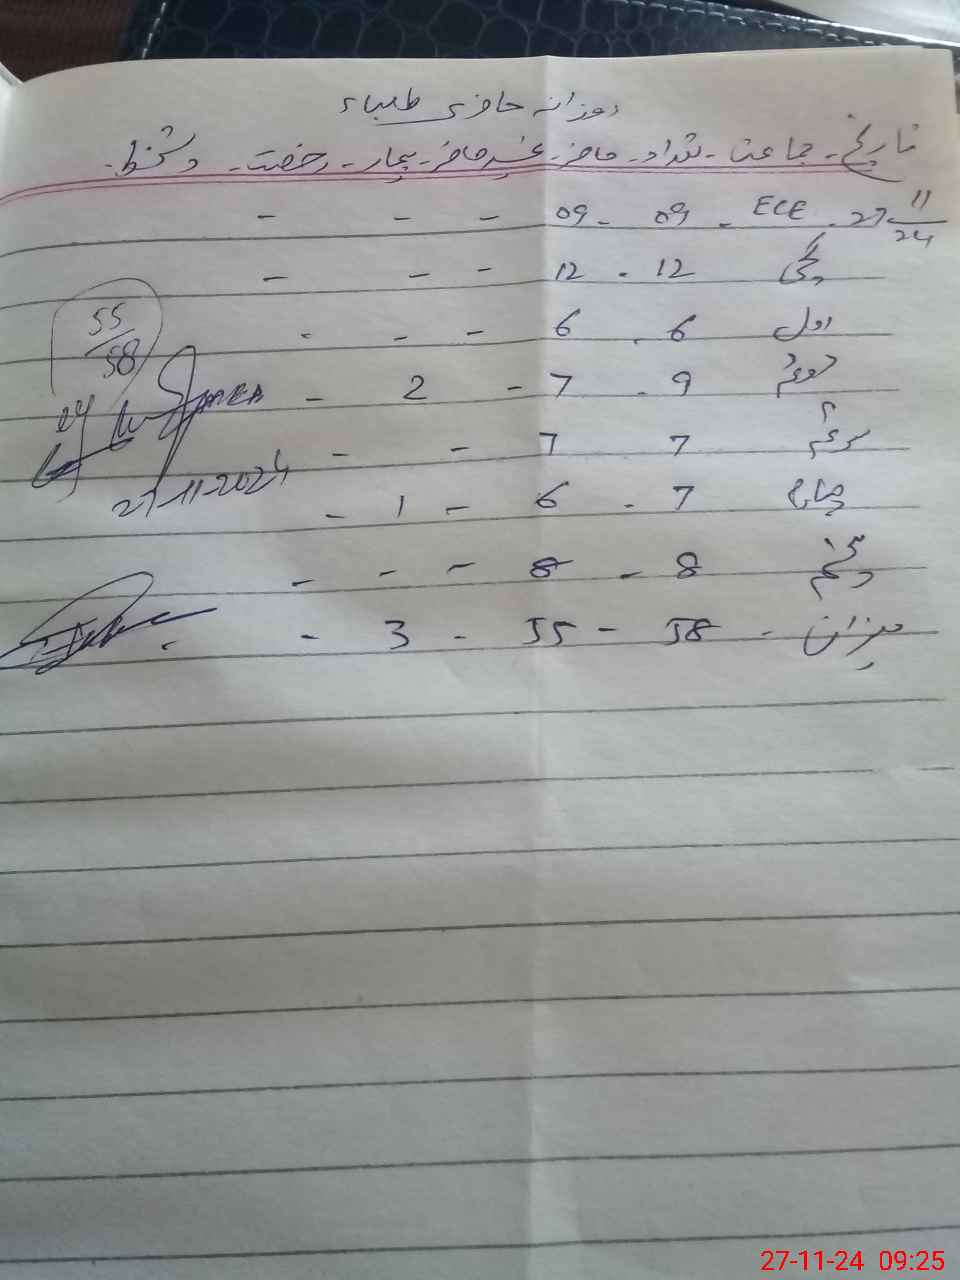 روزانہ حاضری طلباء
تاریخ - جماعت - تعداد - حاضر - غیر حاضر - بیمار - رخصت - دستخط -
27 11/24 - ECE - 09 - 09 - - -
کچی 12 - 12 - - -
اول 6 - 6 - - -
دوئم 9 - 7 - 2 -
سوئم 7 7 - -
چہارم 7 - 6 - 1 -
پنجم 8 - 8 - - -
میزان - 58 - 55 - 3 - -
55/58
27-11-2024
27-11-24 09:25